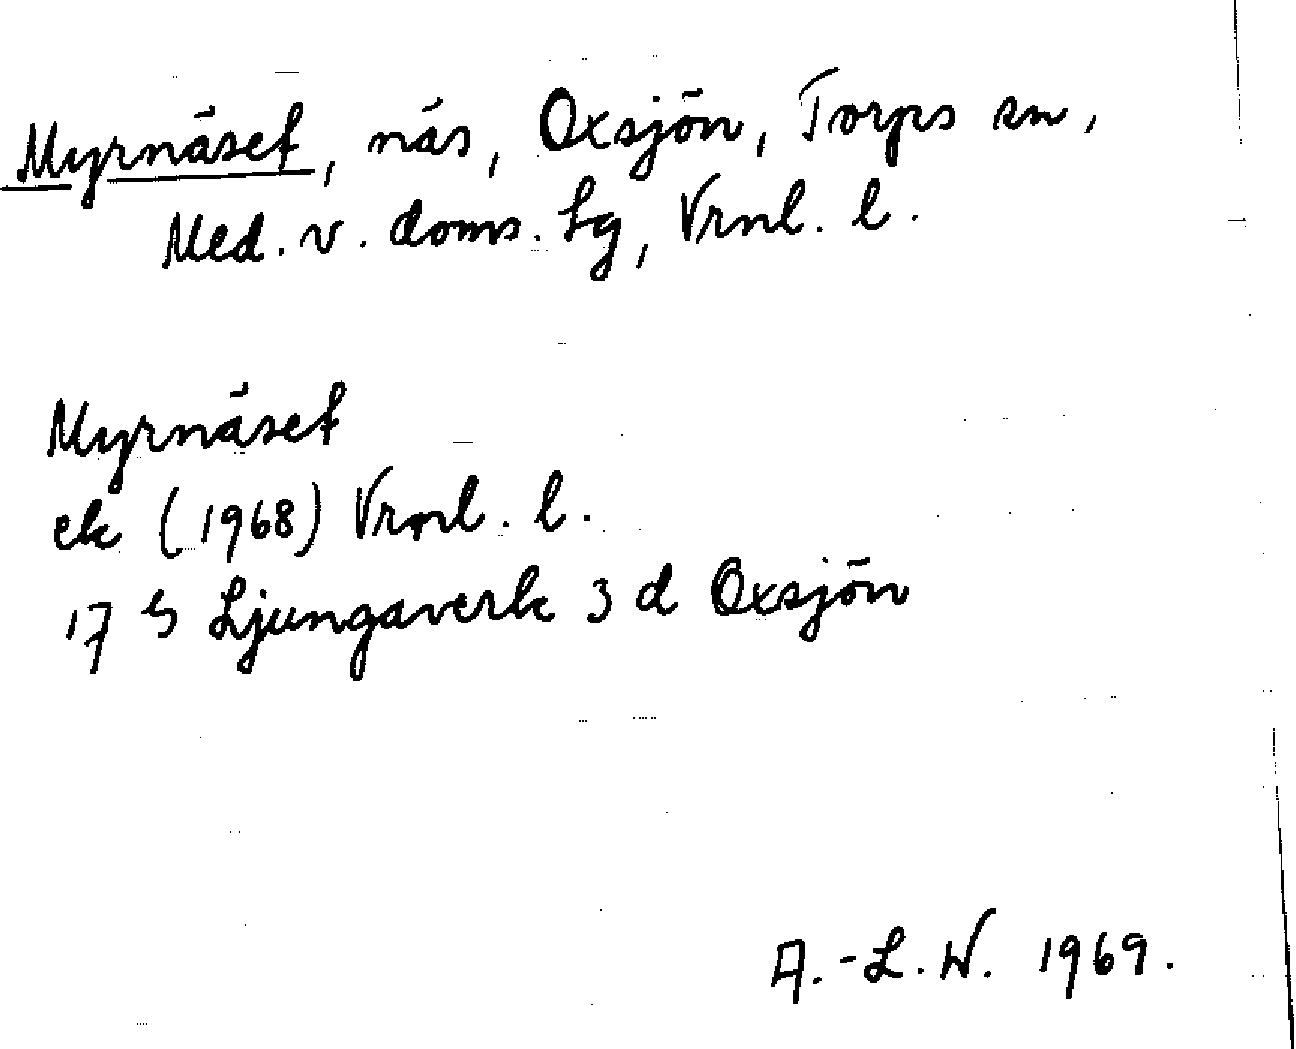 Myrnäset, näs, Oxsjön, Torps sn,
Med. v. doms. lg, Vrnl. l.
Myrnäset
ek (1968) Vrnl. l.
17 G Ljungaverk 3 d Oxsjön
A.-L. W. 1969.